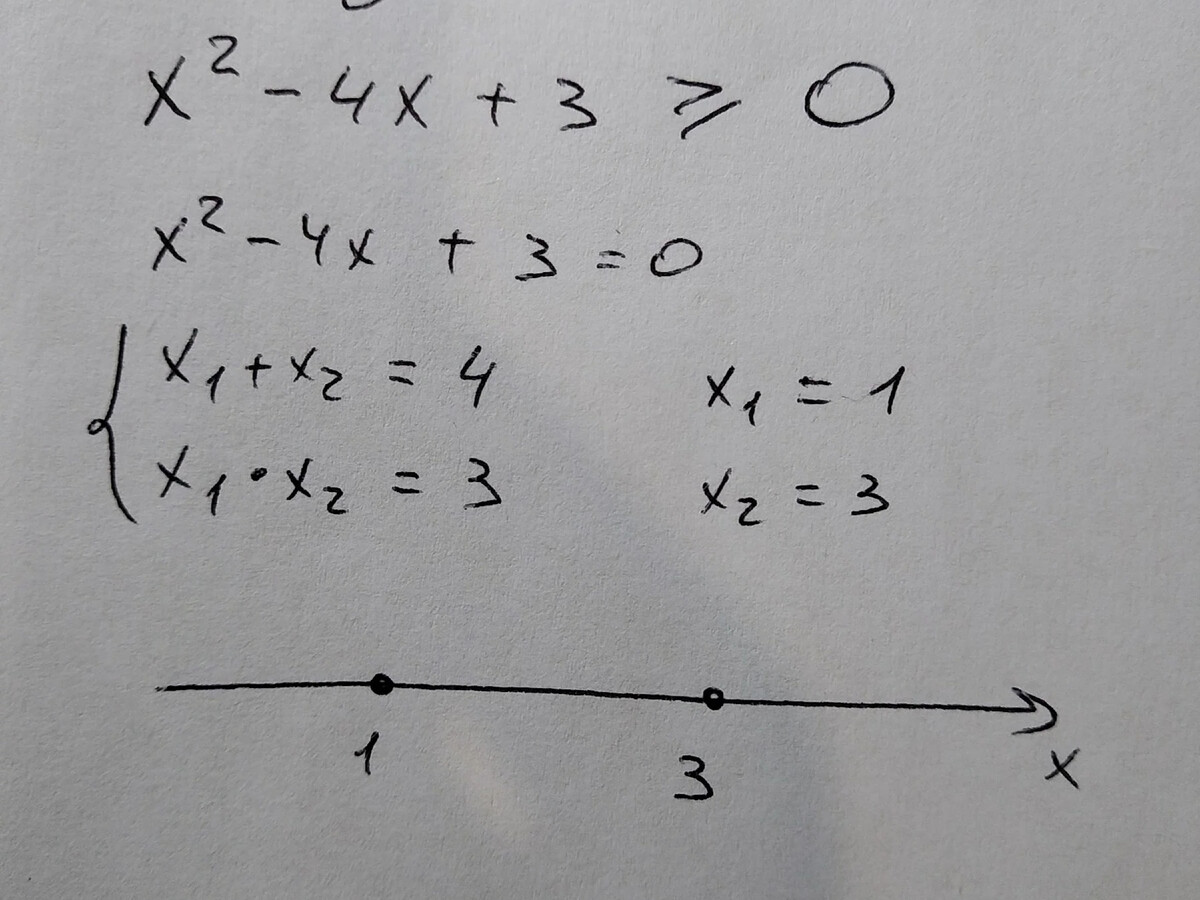 x² - 4x + 3 ⩾ 0
x² - 4x + 3 = 0
x₁ + x₂ = 4 x₁ = 1
x₁ · x₂ = 3 x₂ = 3
1 3 x